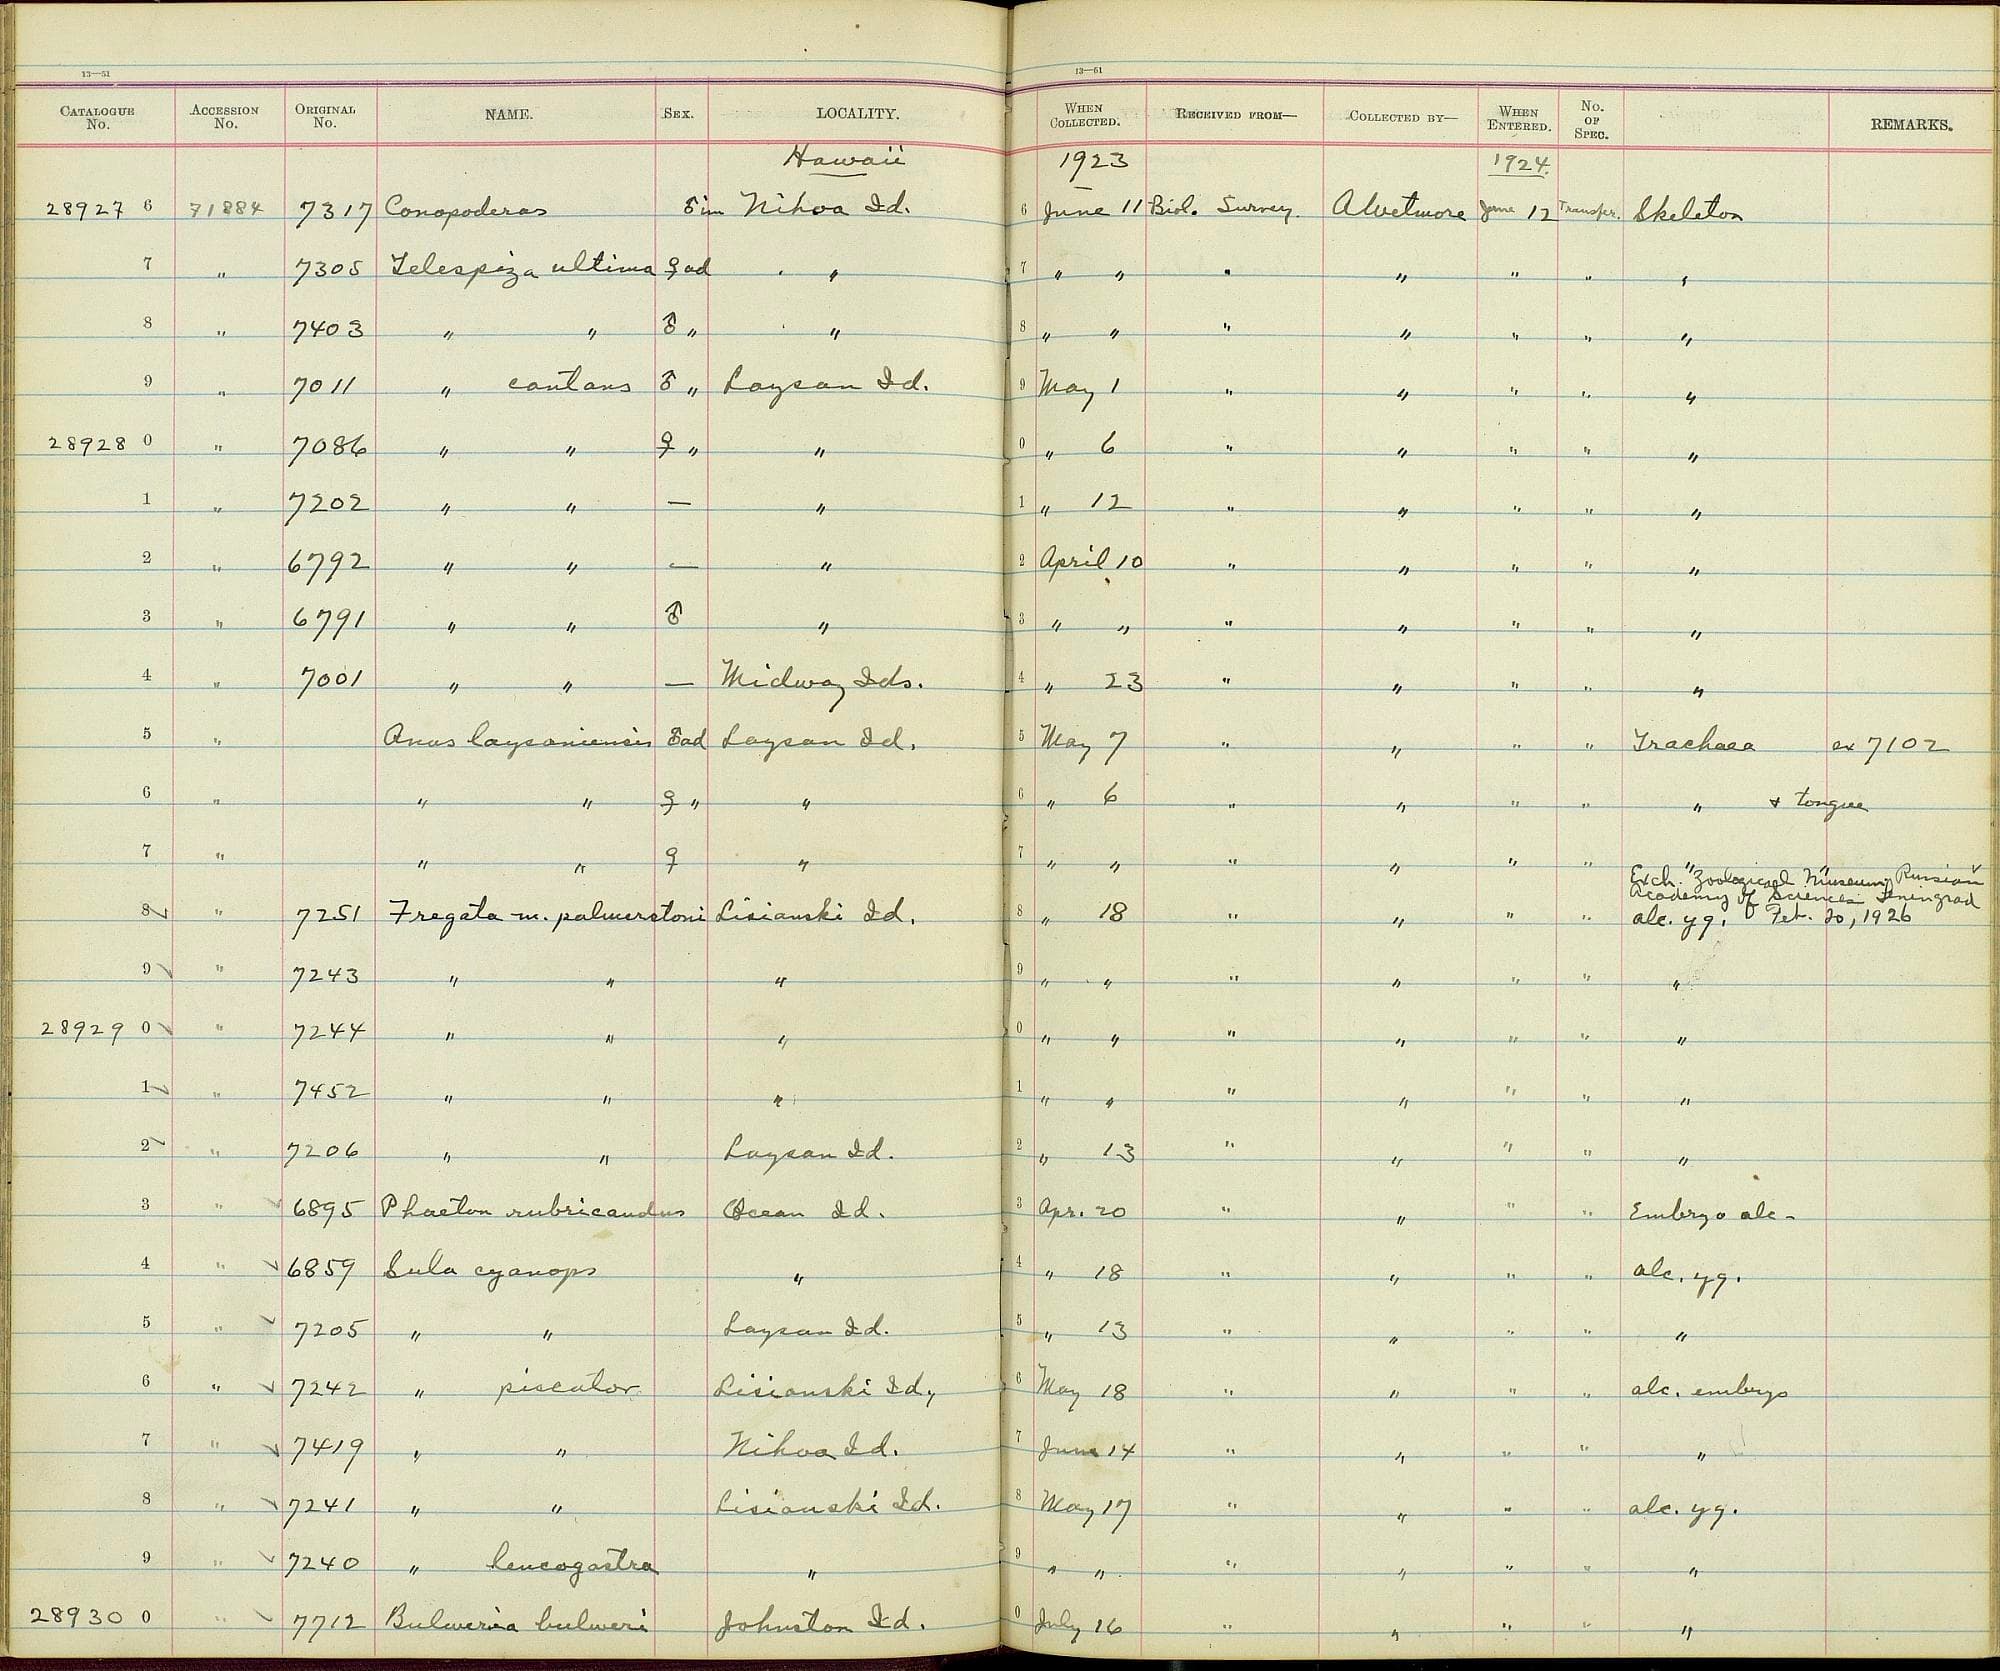 13—51 13—61
CATALOGUE No. ACCESSION No. ORIGINAL No. NAME. SEX. LOCALITY. WHEN COLLECTED. RECEIVED FROM— COLLECTED BY— WHEN ENTERED. No. OF SPEC. REMARKS.
Hawaii 1923 1924.
28927 6 71884 7317 Conopoderas ♂ im Nihoa Id. 6 June 11 Biol. Survey. A Wetmore June 12 Transfer. Skeleton
7 " 7305 Telespiza ultima ♀ ad " 7 " " " " " " "
8 " 7403 " " ♂ " " 8 " " " " " " "
9 " 7011 " cantans ♂ " Laysan Id. 9 May 1 " " " " "
28928 0 " 7086 " " ♀ " " 0 " 6 " " " " "
1 " 7202 " " — " 1 " 12 " " " " "
2 " 6792 " " — " 2 April 10 " " " " "
3 " 6791 " " ♂ " 3 " " " " " " "
4 " 7001 " " — Midway Ids. 4 " 23 " " " " "
5 " Anas laysaniensis ♂ ad Laysan Id. 5 May 7 " " " " Trachaea ex 7102
6 " " " ♀ " " 6 " 6 " " " " " & tongue
7 " " " ♀ " 7 " " " " " " " "
Exch. Zoological Museum, Russian
Academy of Sciences Leningrad
8 " 7251 Fregata m. palmerstoni Lisianski Id. 8 " 18 " " " " alc. yg. Feb. 20, 1926
9 " 7243 " " " 9 " " " " " " "
28929 0 " 7244 " " " 0 " " " " " " "
1 " 7452 " " " 1 " " " " " " "
2 " 7206 " " Laysan Id. 2 " 13 " " " " "
3 " 6895 Phaeton rubricaudus Ocean Id. 3 Apr. 20 " " " " Embryo alc-
4 " 6859 Sula cyanops " 4 " 18 " " " " alc. yg.
5 " 7205 " " Laysan Id. 5 " 13 " " " " "
6 " 7242 " piscator Lisianski Id, 6 May 18 " " " " alc. embryo
7 " 7419 " " Nihoa Id. 7 June 14 " " " " "
8 " 7241 " " Lisianski Id. 8 May 17 " " " " alc. yg.
9 " 7240 " leucogastra " 9 " " " " " " "
28930 0 " 7712 Bulweria bulweri Johnston Id. 0 July 16 " " " " "